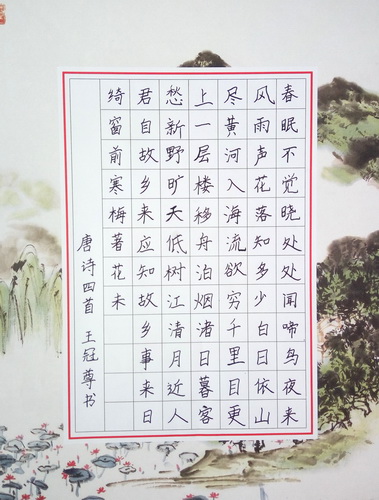 春眠不觉晓处处闻啼鸟夜来
风雨声花落知多少白日依山
尽黄河入海流欲穷千里目更
上一层楼移舟泊烟渚日暮客
愁新野旷天低树江清月近人
君自故乡来应知故乡事来日
绮窗前寒梅著花未
唐诗四首 王冠尊书